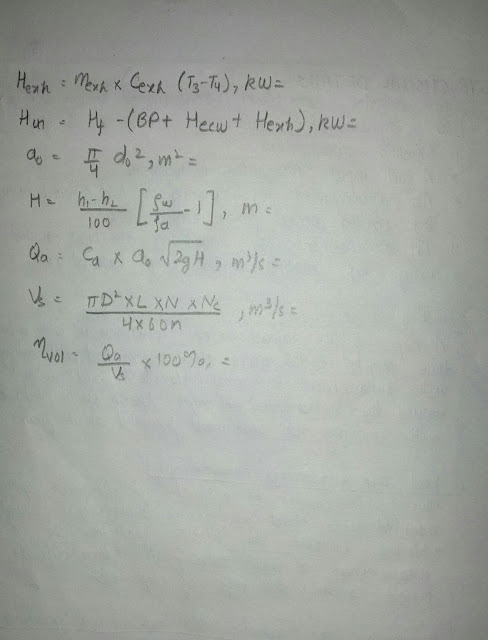 Hexh = mexh x Cexh (T3-T4), kW=
Hun = Hf -(BP+ Hecw+ Hexh), kW=
a0 = π/4 d0², m² =
H = h1-h2/100 [ρw/ρa -1], m =
Qa = Cd x a0 √2gH, m³/s =
Vs = πD²xLxNxNc/4x60n, m³/s =
ηvol = Qa/Vs x100%, =